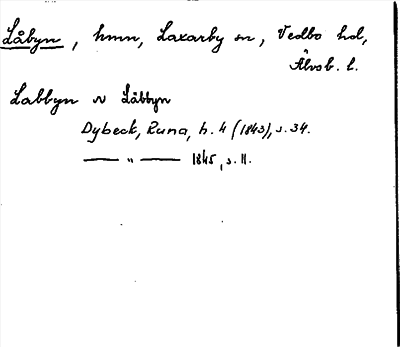 Låbyn, hmn, Laxarby sn, Vedbo hd,
Älvsb. l.
Labbyn ~ Låbbyn
Dybeck, Runa, h. 4 (1843), s. 34.
— " — 1845, s. 11.